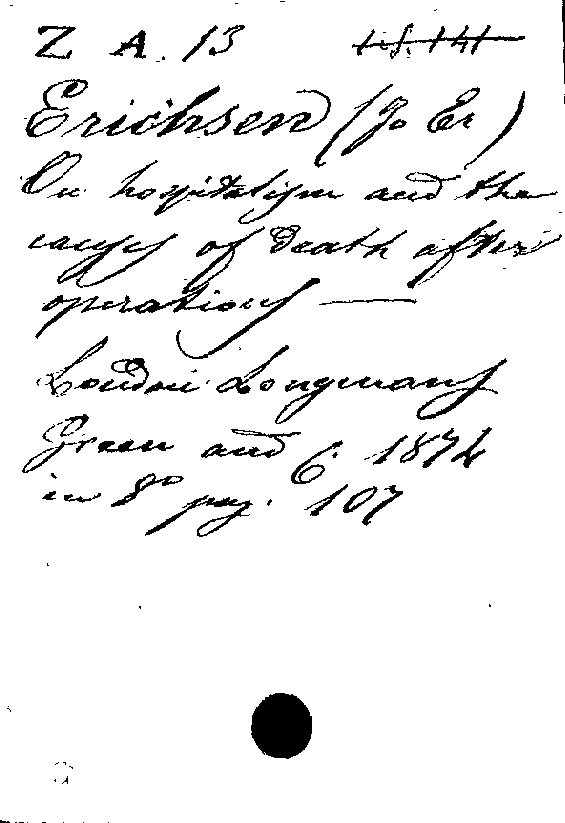 Z A. 13
Erichsen (Jo Er)
On hospitalism and the
causes of death after
operations —
London Longmans
Green and C. 1874
in 8° pag. 107